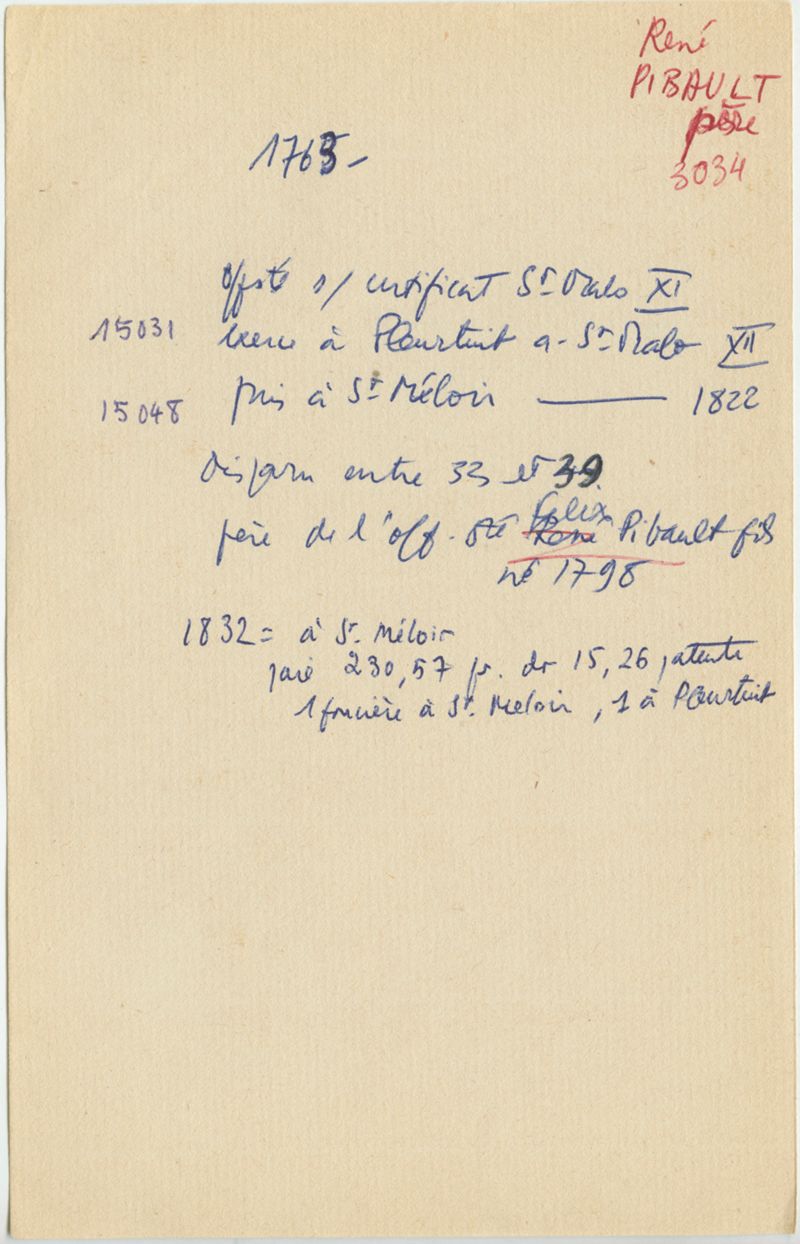 René
PIBAULT
père
3034
1763-
offsté s/ certificat St Malo XI
15031 exerce à Pleurtuit a- St Malo XII
15048 puis à St Méloir — 1822
disparu entre 33 et 39.
Felix
père de l'off. sté René Pibault fils
né 1798
1832 = à St. Méloir
paie 230,57 fr. dr 15,26 patente
1 foncière à St. Meloir, 1 à Pleurtuit